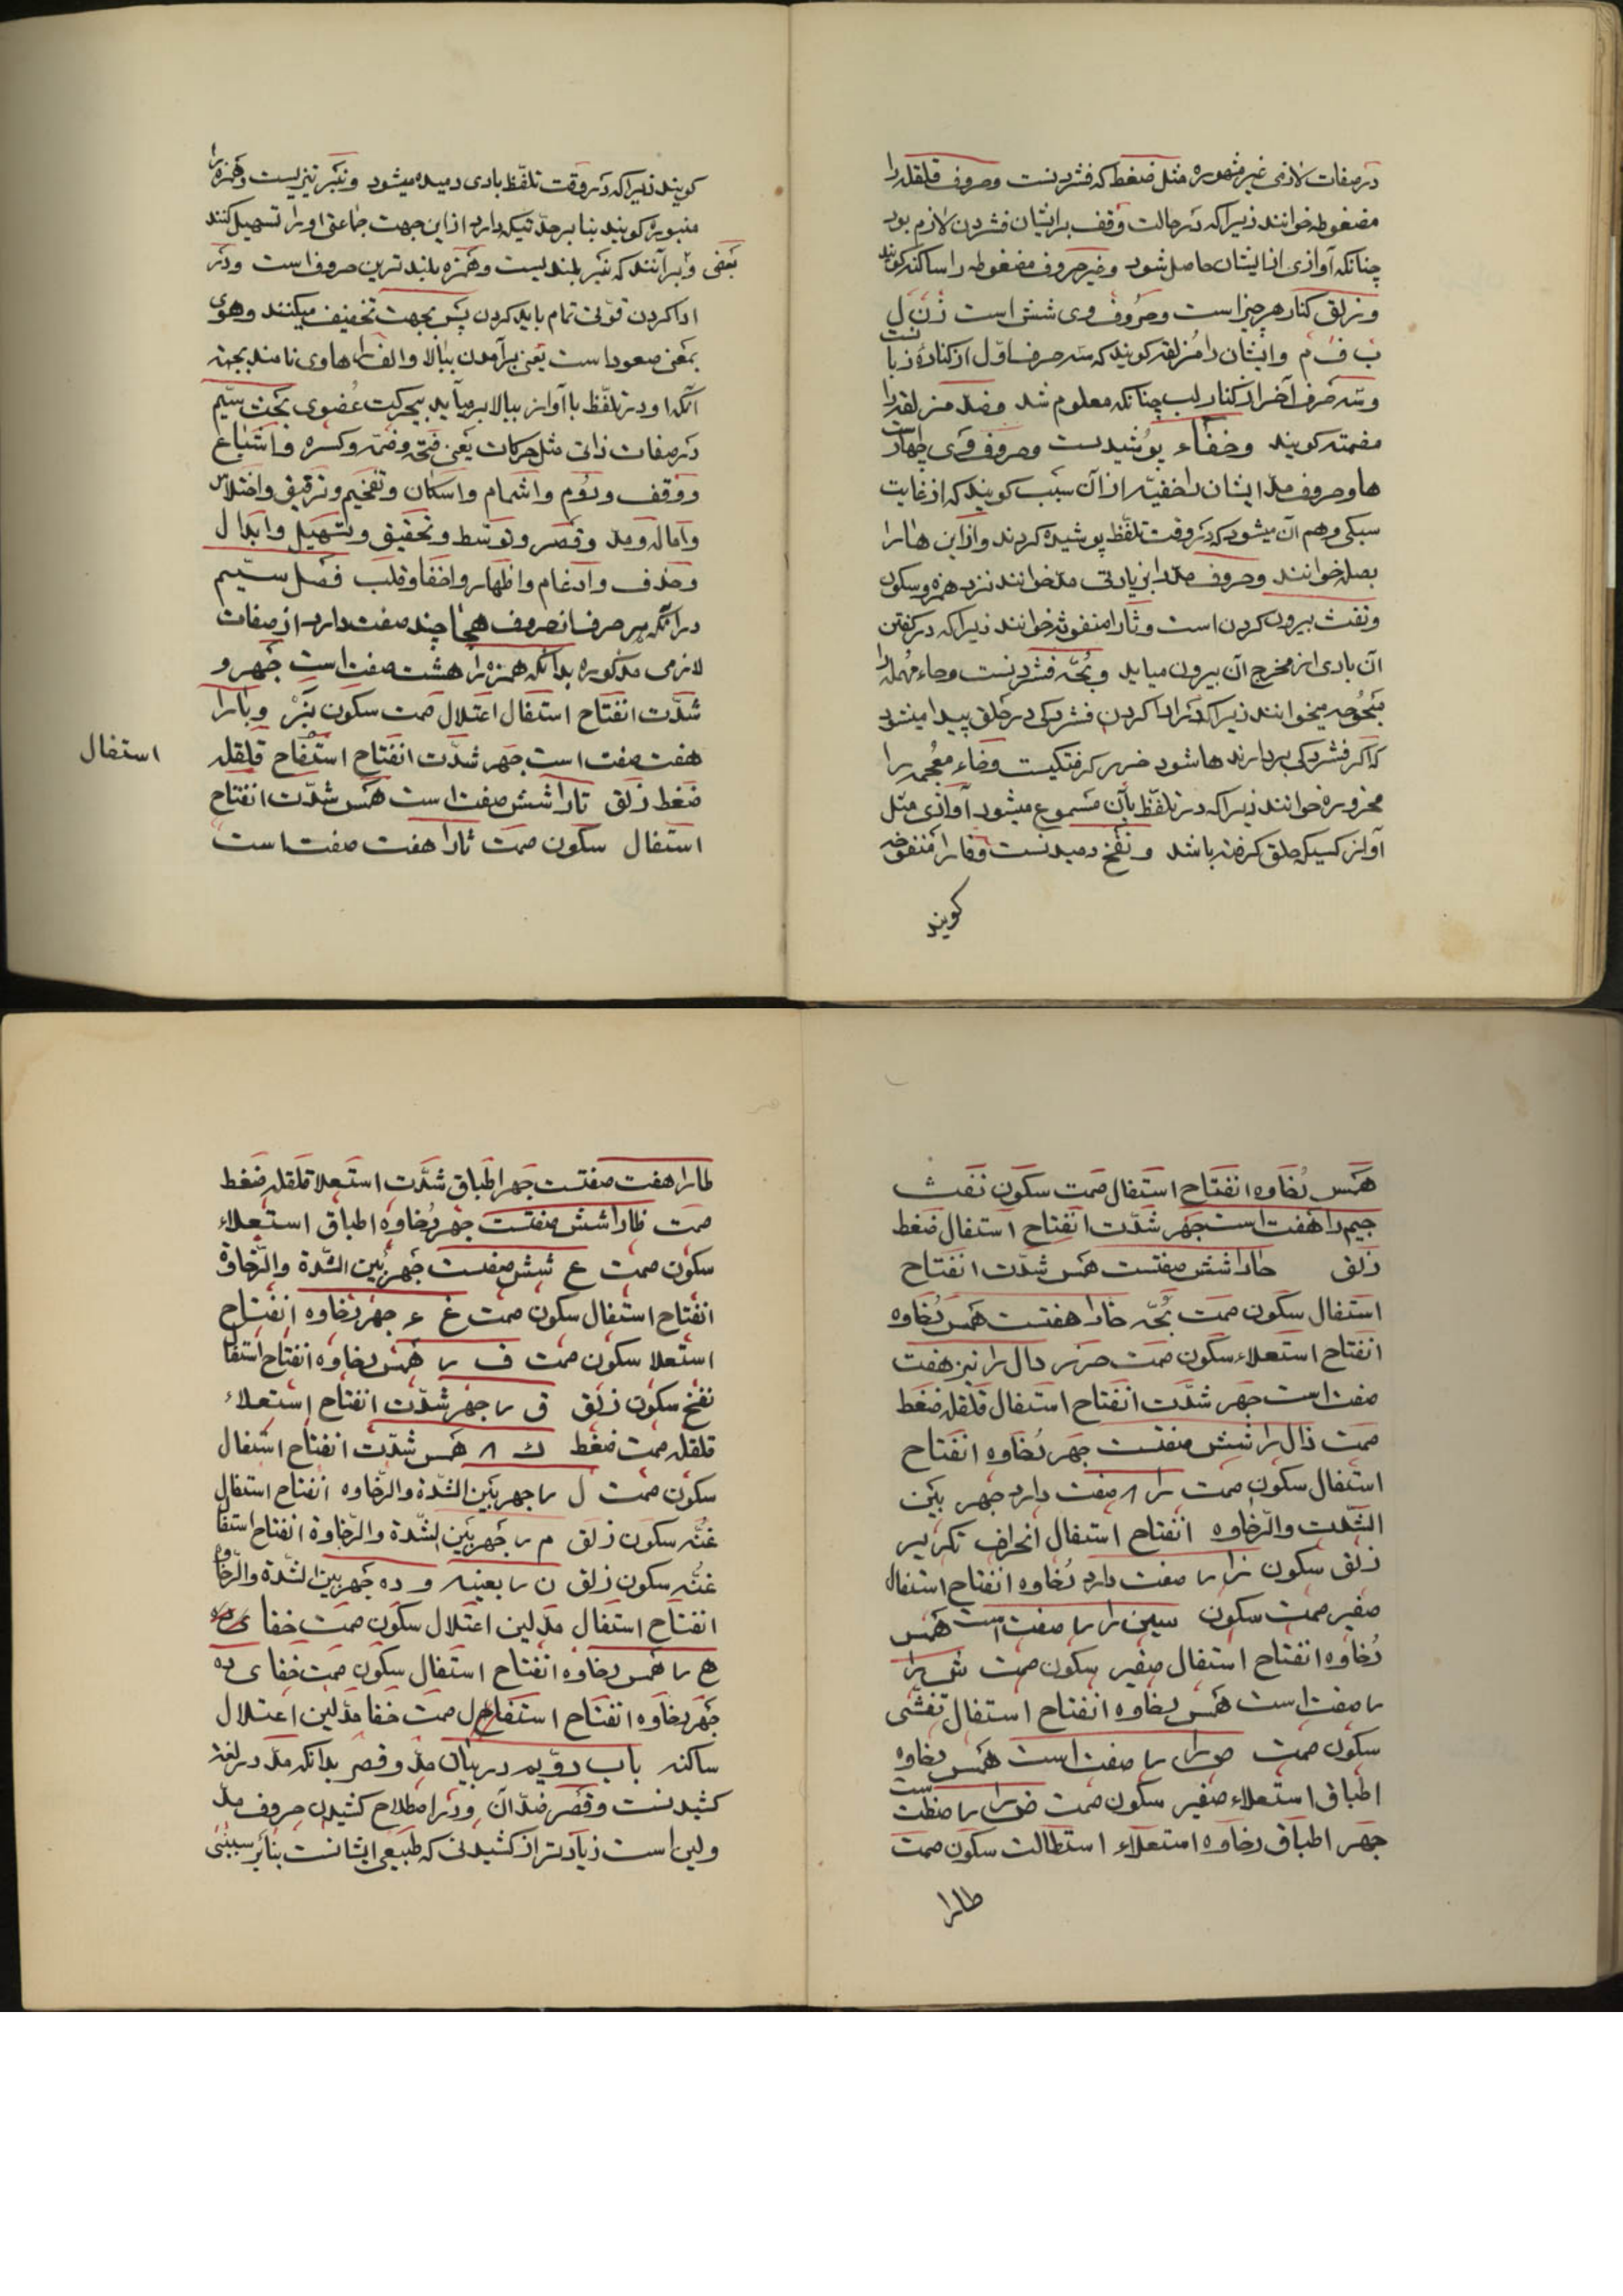 در صفات لازمی غیر مشهوره مثل ضغط که فشردنست وحروف قلقله را
مضغوطه خوانند زیراکه در حالت وقف برایشان فشردن لازم بود
چنانکه آوازی از ایشان حاصل شود وغیر حروف مضغوطه را ساکنه کویند
وزلق کنار هر چیز است وحروف وی شش است ز ن ل
ب ف م وایشان را مزلقه کویند که سه حرف اوّل از کناره زبا نست
وسه حرف آخر از کنار لب چنانکه معلوم شد وضد مزلقه را
مصمته کویند وخفاء پوشیدست وحروف وی چهارست
ها وحروف مد ایشان را خفیّه از آن سبب کویند که از غایت
سبکی وهم آن میشود که در وقت تلفّظ پوشیده کردند واز این ها را
بصله خوانند وحروف مدا بزیادتی مد خوانند نزد همزه وسکون
ونفث بیرون کردن است وثا را منفوثه خوانند زیراکه در کفتن
آن بادی از مخرج آن بیرون میاید وبُحّه فشردنست وحاء مهمله را
مبحوحه میخوانند زیراکه در ادا کردن فشردکی در حلق پیدا میشود
که اکر فشردکی بردارند ها شود خرر کرفتکیست وخاء معجمه را
مخروره خوانند زیراکه در تلفّظ بآن مسموع میشود آوازی مثل
آواز کسیکه حلق کرفته باشد ونفخ دمیدنست وفا را منفوخه
کویند
کویند زیراکه در وقت تلفّظ بادی دمیده میشود ونبر تیزیست وهمزه را
منبوره کویند بنا بر حدّتیکه دارد از این جهت جماعتی او را تسهیل کنند
بعضی وبرآنند که نبر بلندیست وهمزه بلند ترین حروف است ودر
ادا کردن قوّتی تمام باید کردن پس بجهت تخفیف میکنند وهوی
بمعنی صعود است یعنی برآمدن ببالا والف را هاوی نامند بجهة
آنکه او در تلفّظ با آواز ببالا برمیآید بیحرکت عضوی بحث سیّم
در صفات ذاتی مثل حرکات یعنی فتحه وضمّه وکسره واشباع
ووقف وروم واشمام واسکان وتفخیم وترقیق واختلاس
واماله ومد وقصر وتوسّط وتحقیق وتسهیل وابدال
وحذف وادغام واظهار واخفا وقلب فصل سیّیم
در آنکه هر حرف از حروف هجا چند صفت دارد از صفات
لازمی مذکوره بدانکه همزه را هشت صفت است جهر و
شدّت انفتاح استفال اعتلال صمت سکون نبر وبا را
هفت صفت است جهر شدّت انفتاح استفاح قلقله
استفال
ضغط زلق تا را شش صفت است همس شدّت انفتاح
استفال سکون صمت ثا را هفت صفت است
همس رخاوه انفتاح استفال صمت سکون نفث
جیم را هفت است جهر شدّت انفتاح استفال ضغط
زلق حا را شش صفتست همس شدّت انفتاح
استفال سکون صمت بُحّه خا را هفتست همس رخاوه
انفتاح استعلاء سکون صمت خرر دال را نیز هفت
صفت است جهر شدّت انفتاح استفال قلقله ضغط
صمت ذال را شش صفتست جهر رخاوه انفتاح
استفال سکون صمت را ٨ صفت دارد جهر بین
الشّدت والرّخاوه انفتاح استفال انحراف تکریر
زلق سکون زا را صفت دارد رخاوه انفتاح استفال
صفیر صمت سکون سین را صفت است همس
رخاوه انفتاح استفال صفیر سکون صمت ش را
صفت است همس رخاوه انفتاح استفال تفشّی
سکون صمت ص را صفت است همس رخاوه
اطباق استعلاء صفیر سکون صمت ض را
جهر اطباق رخاوه استعلاء استطالت سکون صمت
طا را
طا را هفت صفتست جهر اطباق شدّت استعلا قلقله ضغط
صمت ظا را شش صفتست جهر رخاوه اطباق استعلاء
سکون صمت ع شش صفتست جهر بین الشّدة والرّخاوة
انفتاح استفال سکون صمت غ جهر رخاوه انفتاح
استعلا سکون صمت ف همس رخاوه انفتاح استفال
نفخ سکون زلق ق جهر شدّت انفتاح استعلاء
قلقله صمت ضغط ك همس شدّت انفتاح استفال
سکون صمت ل جهر بین الشّدة والرّخاوه انفتاح استفال
غنّه سکون زلق م جهر بین الشّدة والرّخاوة انفتاح استفا
غنّه سکون زلق ن بعینه و ده جهر بین الشّدة والرّخاوه
انفتاح استفال مد لین اعتلال سکون صمت خفا
ه همس رخاوه انفتاح استفال سکون صمت خفا ی ده
جهر رخاوه انفتاح استفال صمت خفا مدّ لین اعتلال
ساکنه باب دوّیم در بیان مدّ وقصر بدانکه مد در لغة
کشیدنست وقصر ضدّ آن ودر اصطلاح کشیدن حروف مدّ
ولین است زیادتر از کشیدنی که طبیعی ایشانست بنا بر سببی